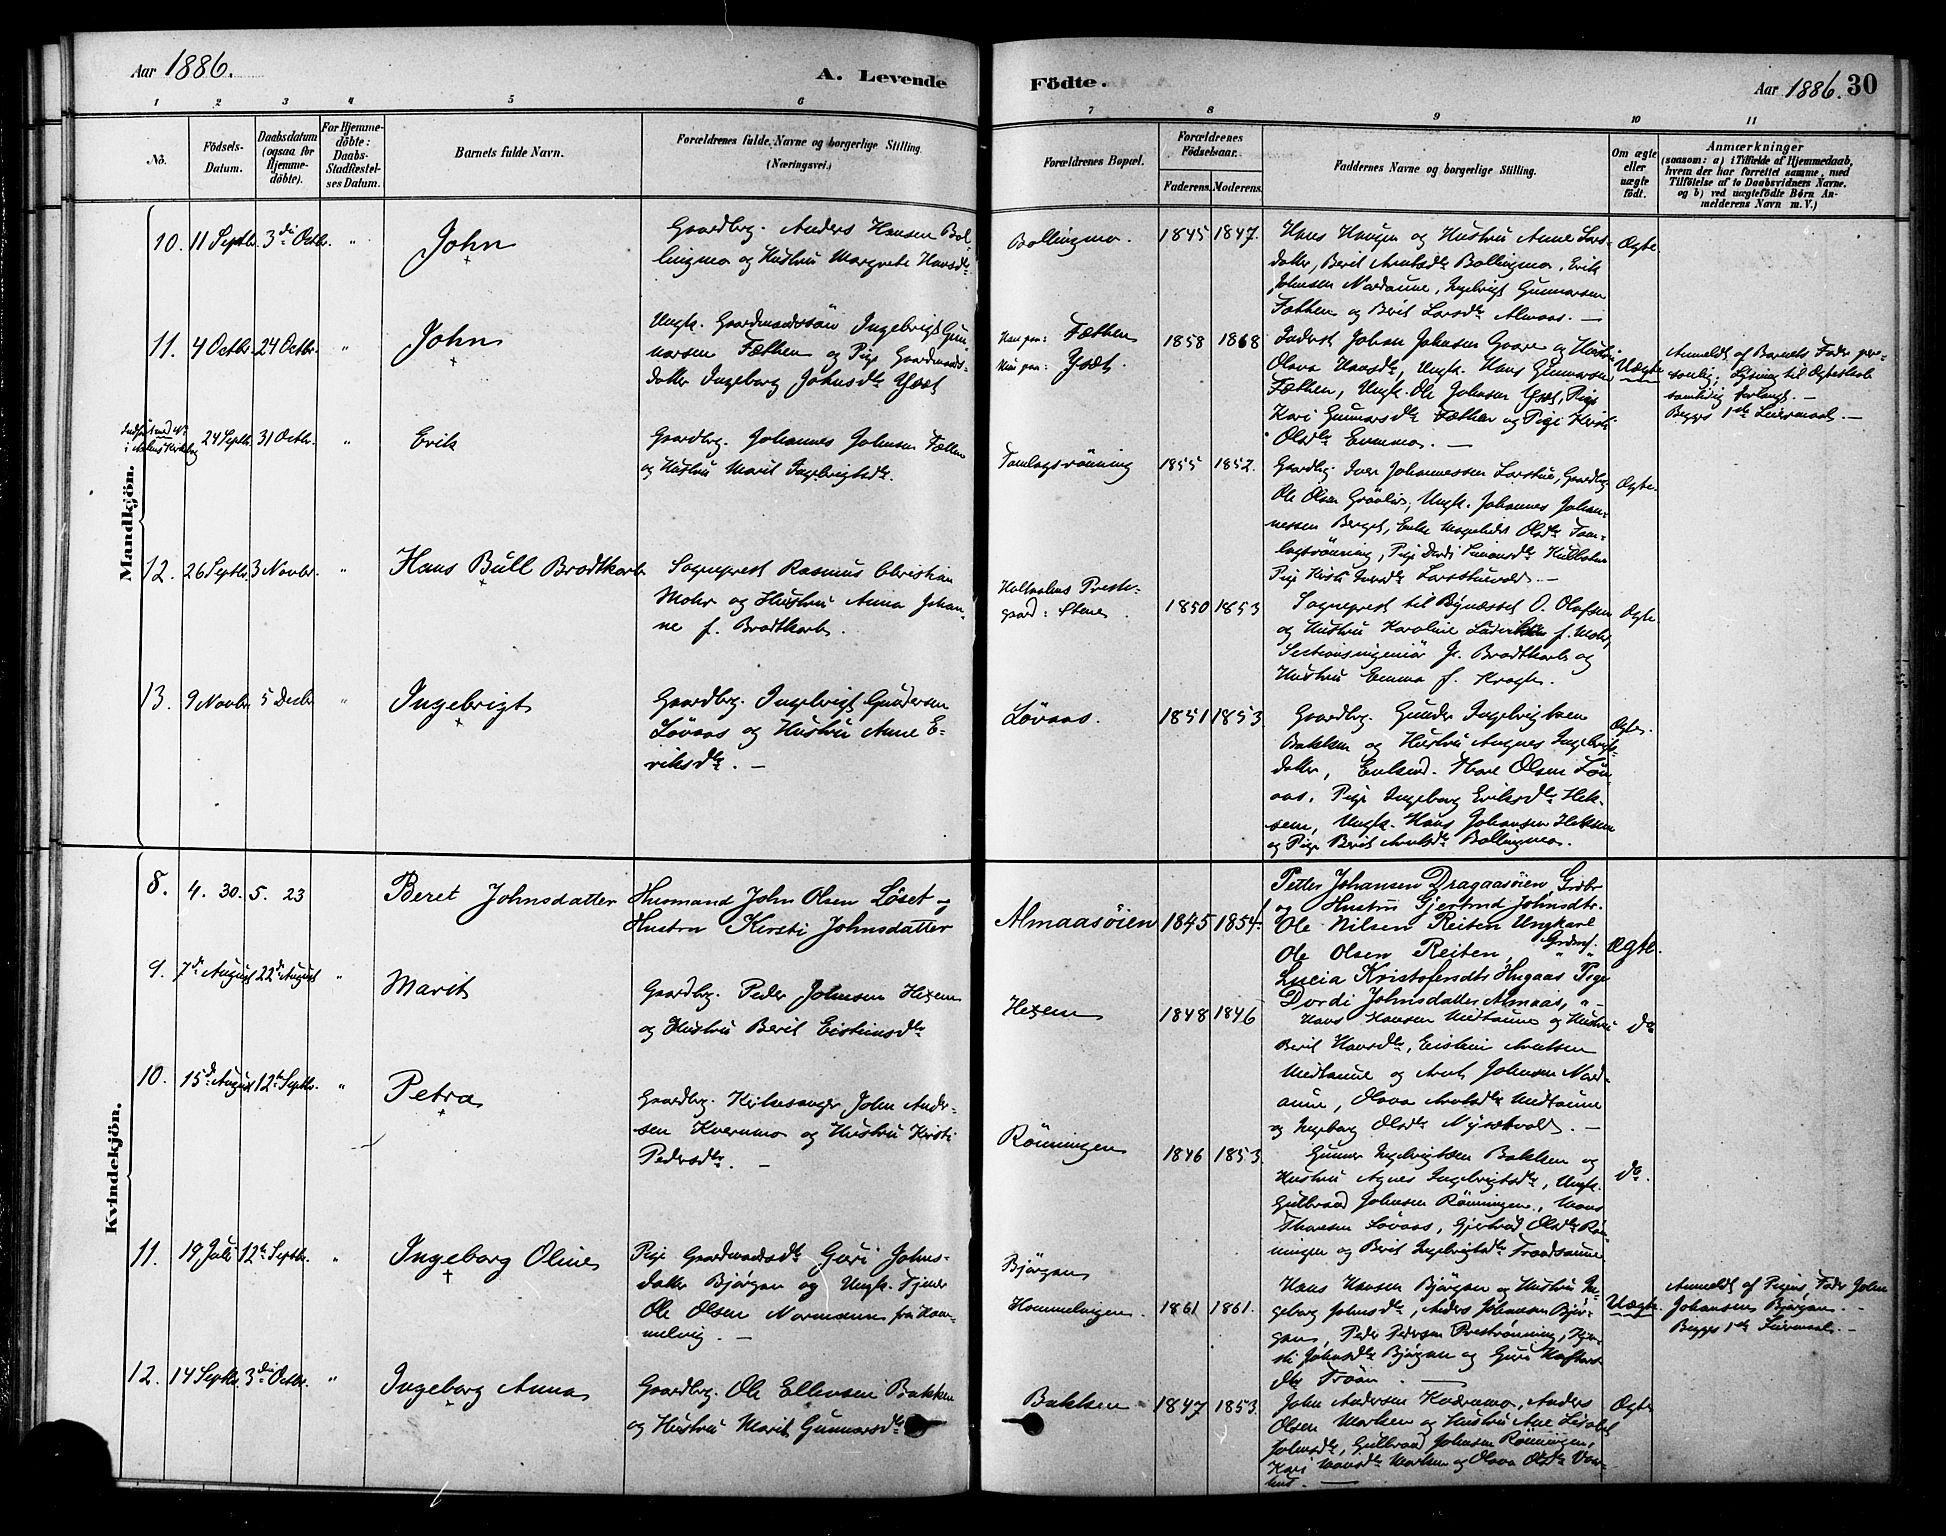 Aar 1886.
A. Levende
Födte.
Aar 1886. 30
1 2 3 4 5 6 7 8 9 10 11
No.
Födsels-
Datum.
Daabsdatum
(ogsaa for
Hjemme-
döbte).
For Hjemme-
döbte:
Daabs-
Stadfæstel-
ses Datum.
Barnets fulde Navn.
Forældrenes fulde Navne og borgerlige Stilling
(Næringsvei.)
Forældrenes Bopæl.
Forældrenes
Födselsaar.
Faderens. Moderens.
Faddernes Navne og borgerlige Stilling.
Om ægte
eller
uægte
født.
Anmærkninger
(saasom: a) i Tilfælde af Hjemmedaab,
hvem der har forrettet samme, med
Tilföielse af to Daabsvidners Navne,
og b) ved uægtefödte Börn An-
melderens Navn m. V.)
Mandkjön.
10. 11 Septbr. 3die Octbr. „ John
Gaardbrg. Anders Hansen Bol-
lingmo og Hustru Margrete Hansdtr
Bollingmo. 1845 1847.
Hans Haugen og Hustru Anne Lars-
datter, Berit Arntsdtr Bollingmo, Erik
Johnsen Nordaune, Ingebrigt Gunnarsen
Fætten og Berit Larsdtr Almaas. —
Ægte.
11. 4 Octbr. 24 Octbr. „ John
Ungk. Gaardmandssön Ingebrigt Gun-
narsen Fæthen og Pige Gaardmands-
datter Ingeborg Johnsdtr Ysæt
Han paa: Fæthen
Hun paa: Ysæt.
1858 1868
Inderst Johan Johnsen Gaare og Hustru
Olava Hansdtr, Ungk. Hans Gunnarsen
Fæthen, Ungk. Ole Johnsen Ysæt, Pige
Kari Gunnarsdtr Fæthen og Pige Kirsti
Olsdtr Evenmo. —
Uægte
Anmeldt af Barnets Fader per-
sonlig; Lysning til Ægteskab
samtidig forlangt. —
Begges 1ste Leiermaal. —
24 Septbr. 31 Octbr. „ Erik
Gaardbrg. Johannes Johnsen Fætten
og Hustru Marit Ingebrigtsdtr.
Tamlagsrönning 1855 1852.
Gaardbrg. Iver Johannessen Larstuv, Gaardbrg.
Ole Olsen Gröolien, Ungk. Johannes Johan-
nessen Berget, Enke Magnhild Olsdtr Tam-
lagsrönning, Pige Dordi Simonsdtr
Pige Kirsti Iversdtr Larsthuvold. —
Ægte.
12. 26 Septbr. 3 Novbr. „ Hans Bull Brodtkorb
Sogneprest Rasmus Christian
Mohr og Hustru Anna Johan-
ne f. Brodtkorb.
Holtaalens Preste-
gaard: Stene.
1850 1853
Sogneprest til Bynæsset O. Olafsen
og Hustru Karoline f. Mohr,
Sectionsingeniör Jr. Brodtkorb og
Hustru Emma f. Krogh.
Ægte.
13. 9 Novbr. 5 Decbr. „ Ingebrigt
Gaardbrg. Ingebrigt Gundersen
Lövaas og Hustru Anne E-
riksdtr. —
Lövaas. 1851 1853.
Gaardbrg. Gunder Ingebrigtsen
Bakken og Hustru Angnes Ingebrigts-
datter, Enkemd. Thore Olsen Löv-
aas, Pige Ingeborg Eriksdtr Hek-
sem, Ungk. Hans Johansen Heksem
og Pige Berit Arntsdtr Bollingmo.
Ægte.
Kvindekjön.
8. 4. 30. 5. 23 Beret Johnsdatter
Husmand John Olsen Löset og
Hustru Kirsti Johnsdatter
Almaasöien 1845 1854.
Petter Johansen Dragaasöien, Grdbr
og Hustru Gjertrud Johnsdtr.
Ole Nilsen Reiten Ungkarl
Ole Olsen Reiten, „ „
Lucia Kristofersdtr Hugaas Pige
Dordi Johnsdatter Almaas, „ —
Ægte.
9. 7de August 22de August „ Marit
Gaardbrg. Peder Johnsen Hexem
og Hustru Berit Eistensdtr
Hexem 1848 1846
Hans Hansen Midtaune og Hustru
Berit Hansdtr, Eistein Arntsen
Midtaune og Arnt Johnsen Nord-
aune, Olava Arntsdtr Midtaune
og Ingeborg Olsdtr Nysætvold. —
do
10. 15de August 12te Septbr. „ Petra
Gaardbrg. Kirkesanger John Ander-
sen Kvernmo og Hustru Kirsti
Pedersdtr. —
Rönningen 1846 1853.
Gunner Ingebrigtsen Bakken og
Hustru Agnes Ingebrigtsdtr, Ungk.
Gulbrand Johnsen Rönningen, Hans
Thoresen Lövaas, Gjertrud Olsdtr Rön-
ningen og Berit Ingebrigtsdtr Troadsaune
do.
11. 19 Juli 12te Septbr. „ Ingeborg Oline
Pige Gaardmandsdtr Guri Johns-
datter Bjørgen og Ungk. Tjener
Ole Olsen Normann fra Hom-
melvig. —
Bjørgen
Hommelvigen. 1861 1861.
Hans Hansen Bjørgen og Hustru In-
geborg Johnsdtr, Anders Johansen Bjør-
gen, Peder Pedersen Prestrønning, Kjer-
sti Johnsdtr Bjørgen og Guri
dtr Troön. —
Uægte.
Anmeldt af Pigens Fader John
Johansen Bjørgen. —
Begges 1ste Leiermaal. —
12. 14 Septbr. 3die Octbr. „ Ingeborg Anna
Gaardbrg. Ole Ellensen Bakken
og Hustru Marit Gunnarsdtr
Bakken 1847 1853.
John Andersen Kværnmo, Anders
Olsen Morken og Hustru Ane Lisabet
Johnsdtr, Gulbrand Johnsen Rönningen,
Kari Hansdtr Morken og Olava Olsdtr
Ægte